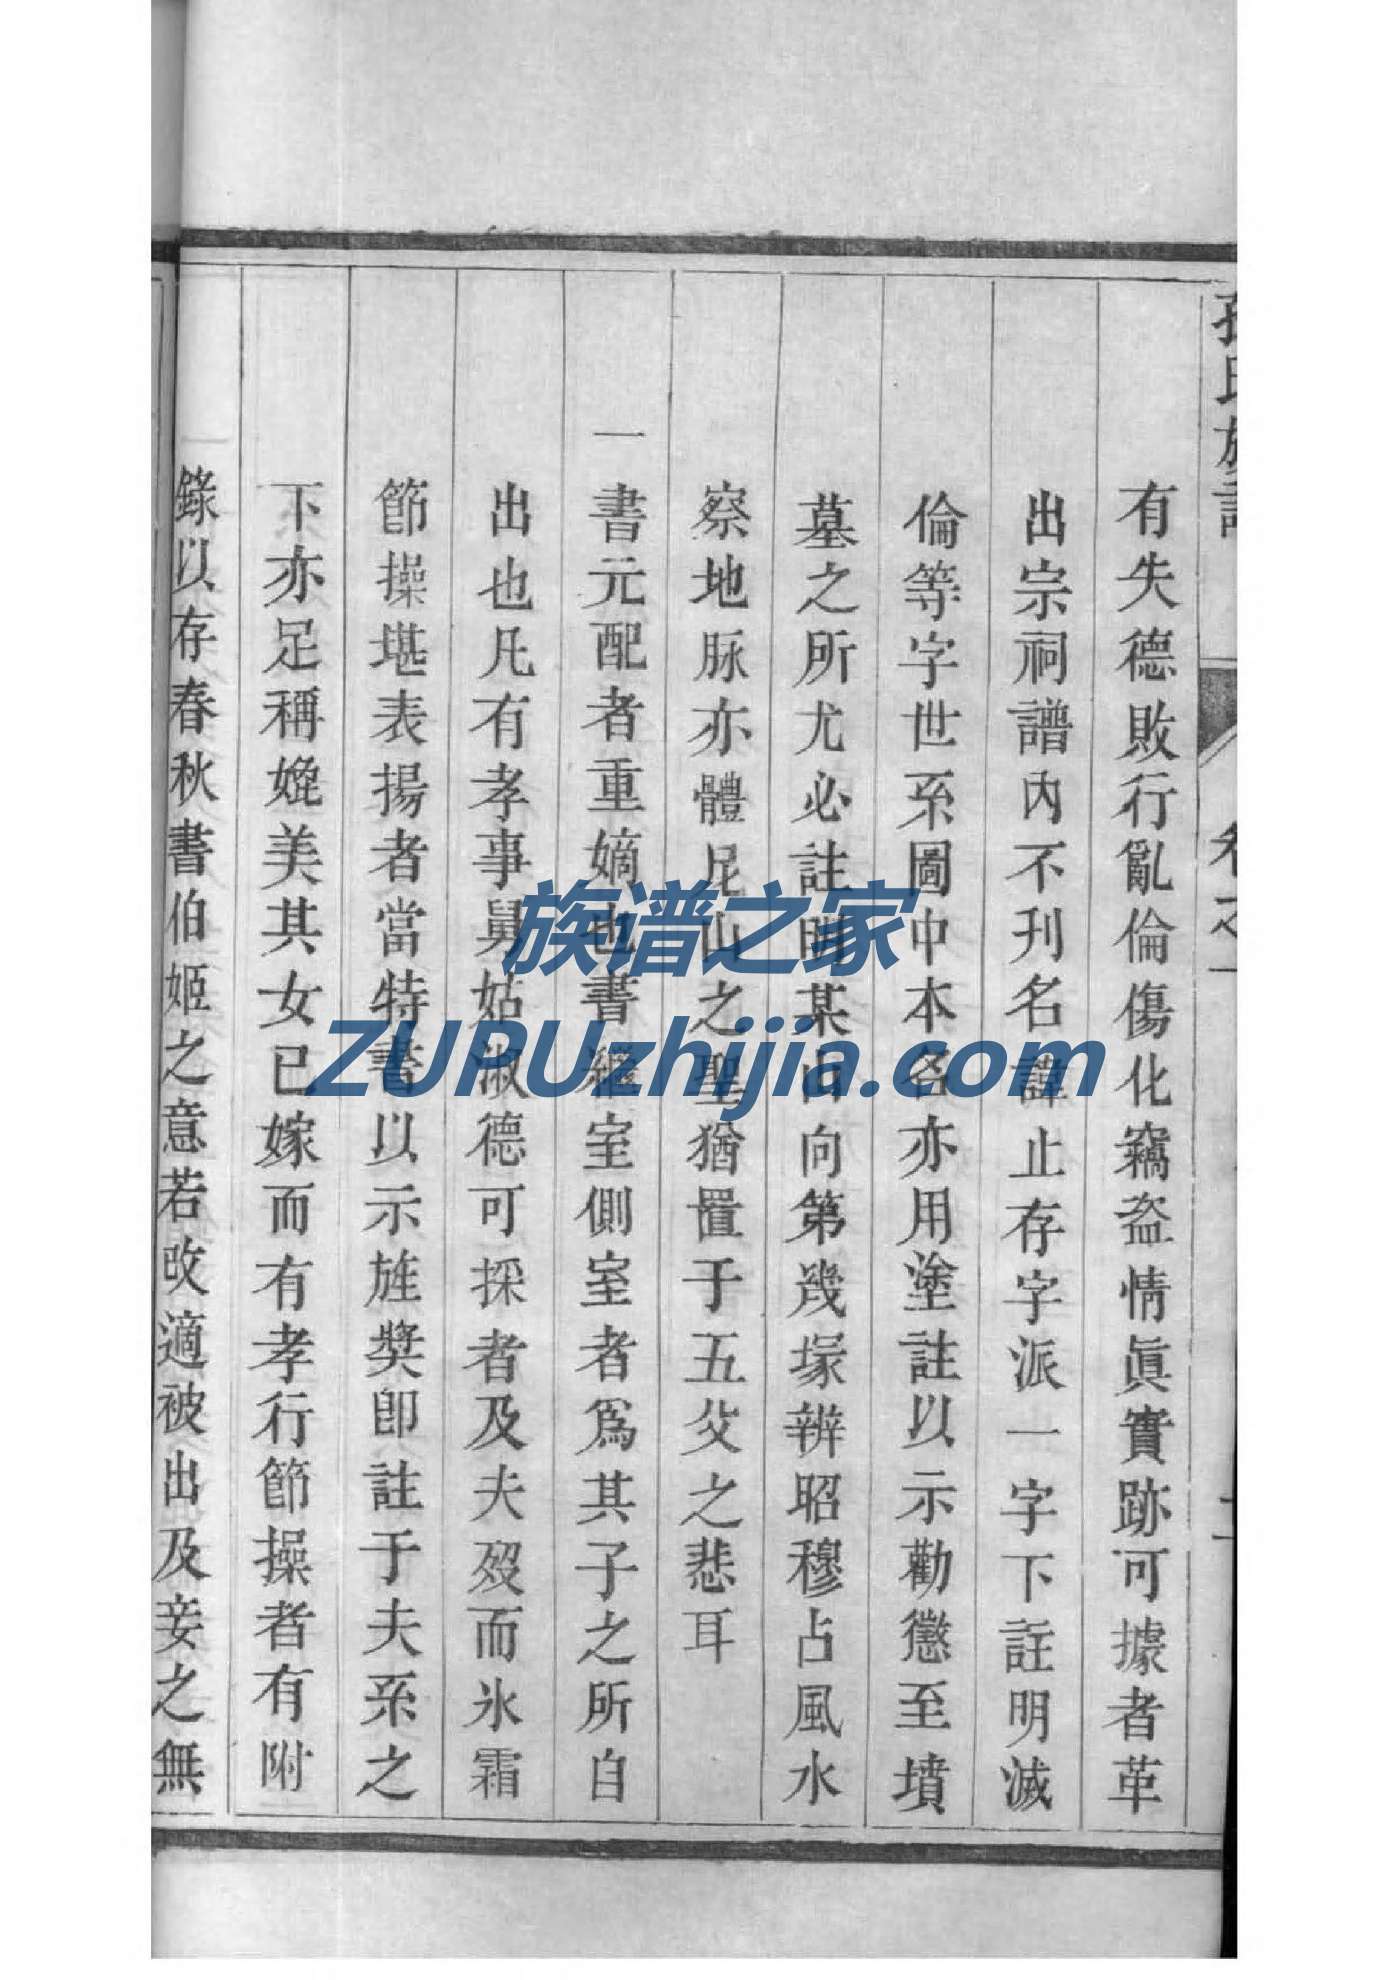 孫氏族譜 卷之一
有失德敗行亂倫傷化竊盗情眞實跡可據者革
出宗祠譜內不刋名諱止存字派一字下註明滅
倫等字世系圖中本名亦用塗註以示勸懲至墳
墓之所尤必註明某山向第幾塚辨昭穆占風水
察地脉亦體尼山之聖猶置于五父之悲耳
一書元配者重嫡也書繼室側室者爲其子之所自
出也凡有孝事舅姑淑德可採者及夫歿而氷霜
節操堪表揚者當特書以示旌奬卽註于夫系之
下亦足稱娩美其女已嫁而有孝行節操者有附
錄以存春秋書伯姬之意若改適被出及妾之無
族谱之家
ZUPUzhijia.com